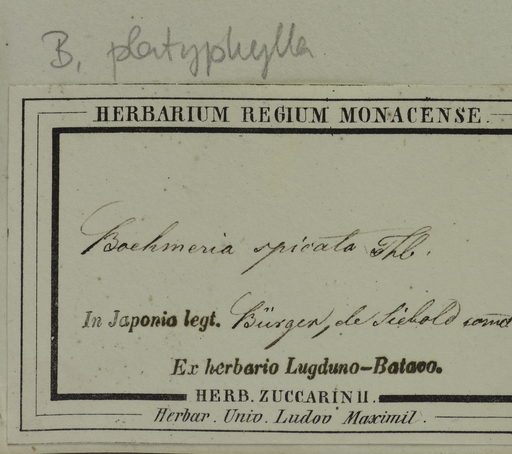 B. platyphylla
HERBARIUM REGIUM MONACENSE.
Boehmeria spicata Thb.
In Japonia legt. Bürger, de Siebold
Ex herbario Lugduno-Batavo.
HERB. ZUCCARINII.
Herbar. Univ. Ludov Maximil.